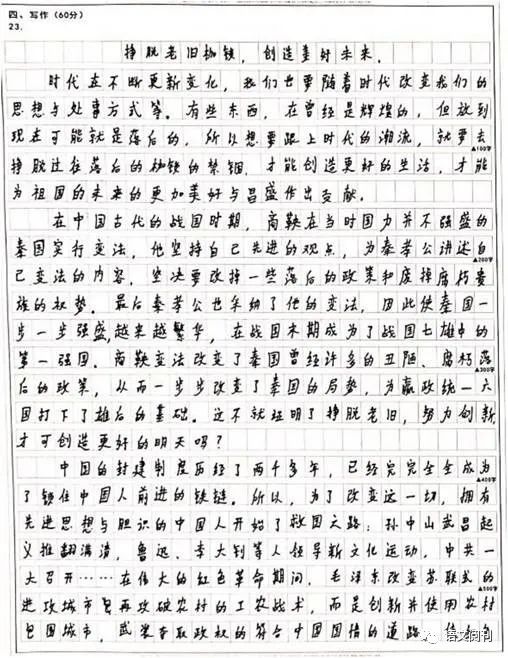 四、写作（60分）
23.
挣脱老旧枷锁，创造美好未来。
时代在不断更新变化，我们也要随着时代改变我们的
思想与处事方式等。有些东西，在曾经是辉煌的，但放到
现在可能就是落后的，所以想要跟上时代的潮流，就要去
▲100字
挣脱过往落后的枷锁的禁锢，才能创造更好的生活，才能
为祖国的未来的更加美好与昌盛作出贡献。
在中国古代的战国时期，商鞅在当时国力并不强盛的
秦国实行变法，他坚持自己先进的观点，为秦孝公讲述自
▲200字
己变法的内容，坚决要改掉一些落后的政策和废掉腐朽贵
族的权势。最后秦孝公也采纳了他的变法，因此使秦国一
步一步强盛，越来越繁华，在战国末期成为了战国七雄中的
第一强国。商鞅变法改变了秦国曾经许多的丑陋、腐朽落
▲300字
后的政策，从而一步步改变了秦国的局势，为嬴政统一六
国打下了雄后的基础。这不就证明了挣脱老旧，努力创新
才可创造更好的明天吗？
中国的封建制度历经了两千多年，已经完完全全成为
▲400字
了锁住中国人前进的铁链。所以，为了改变这一切，拥有
先进思想与胆识的中国人开始了救国之路：孙中山武昌起
义推翻满清，鲁迅、李大钊等人领导新文化运动，中共一
大召开……在伟大的红色革命期间，毛泽东改变苏联式的
▲500字
进攻城市再攻破农村的工农战术，而是创新并使用农村
包围城市，武装夺取政权的符合中国国情的道路，
语文周刊